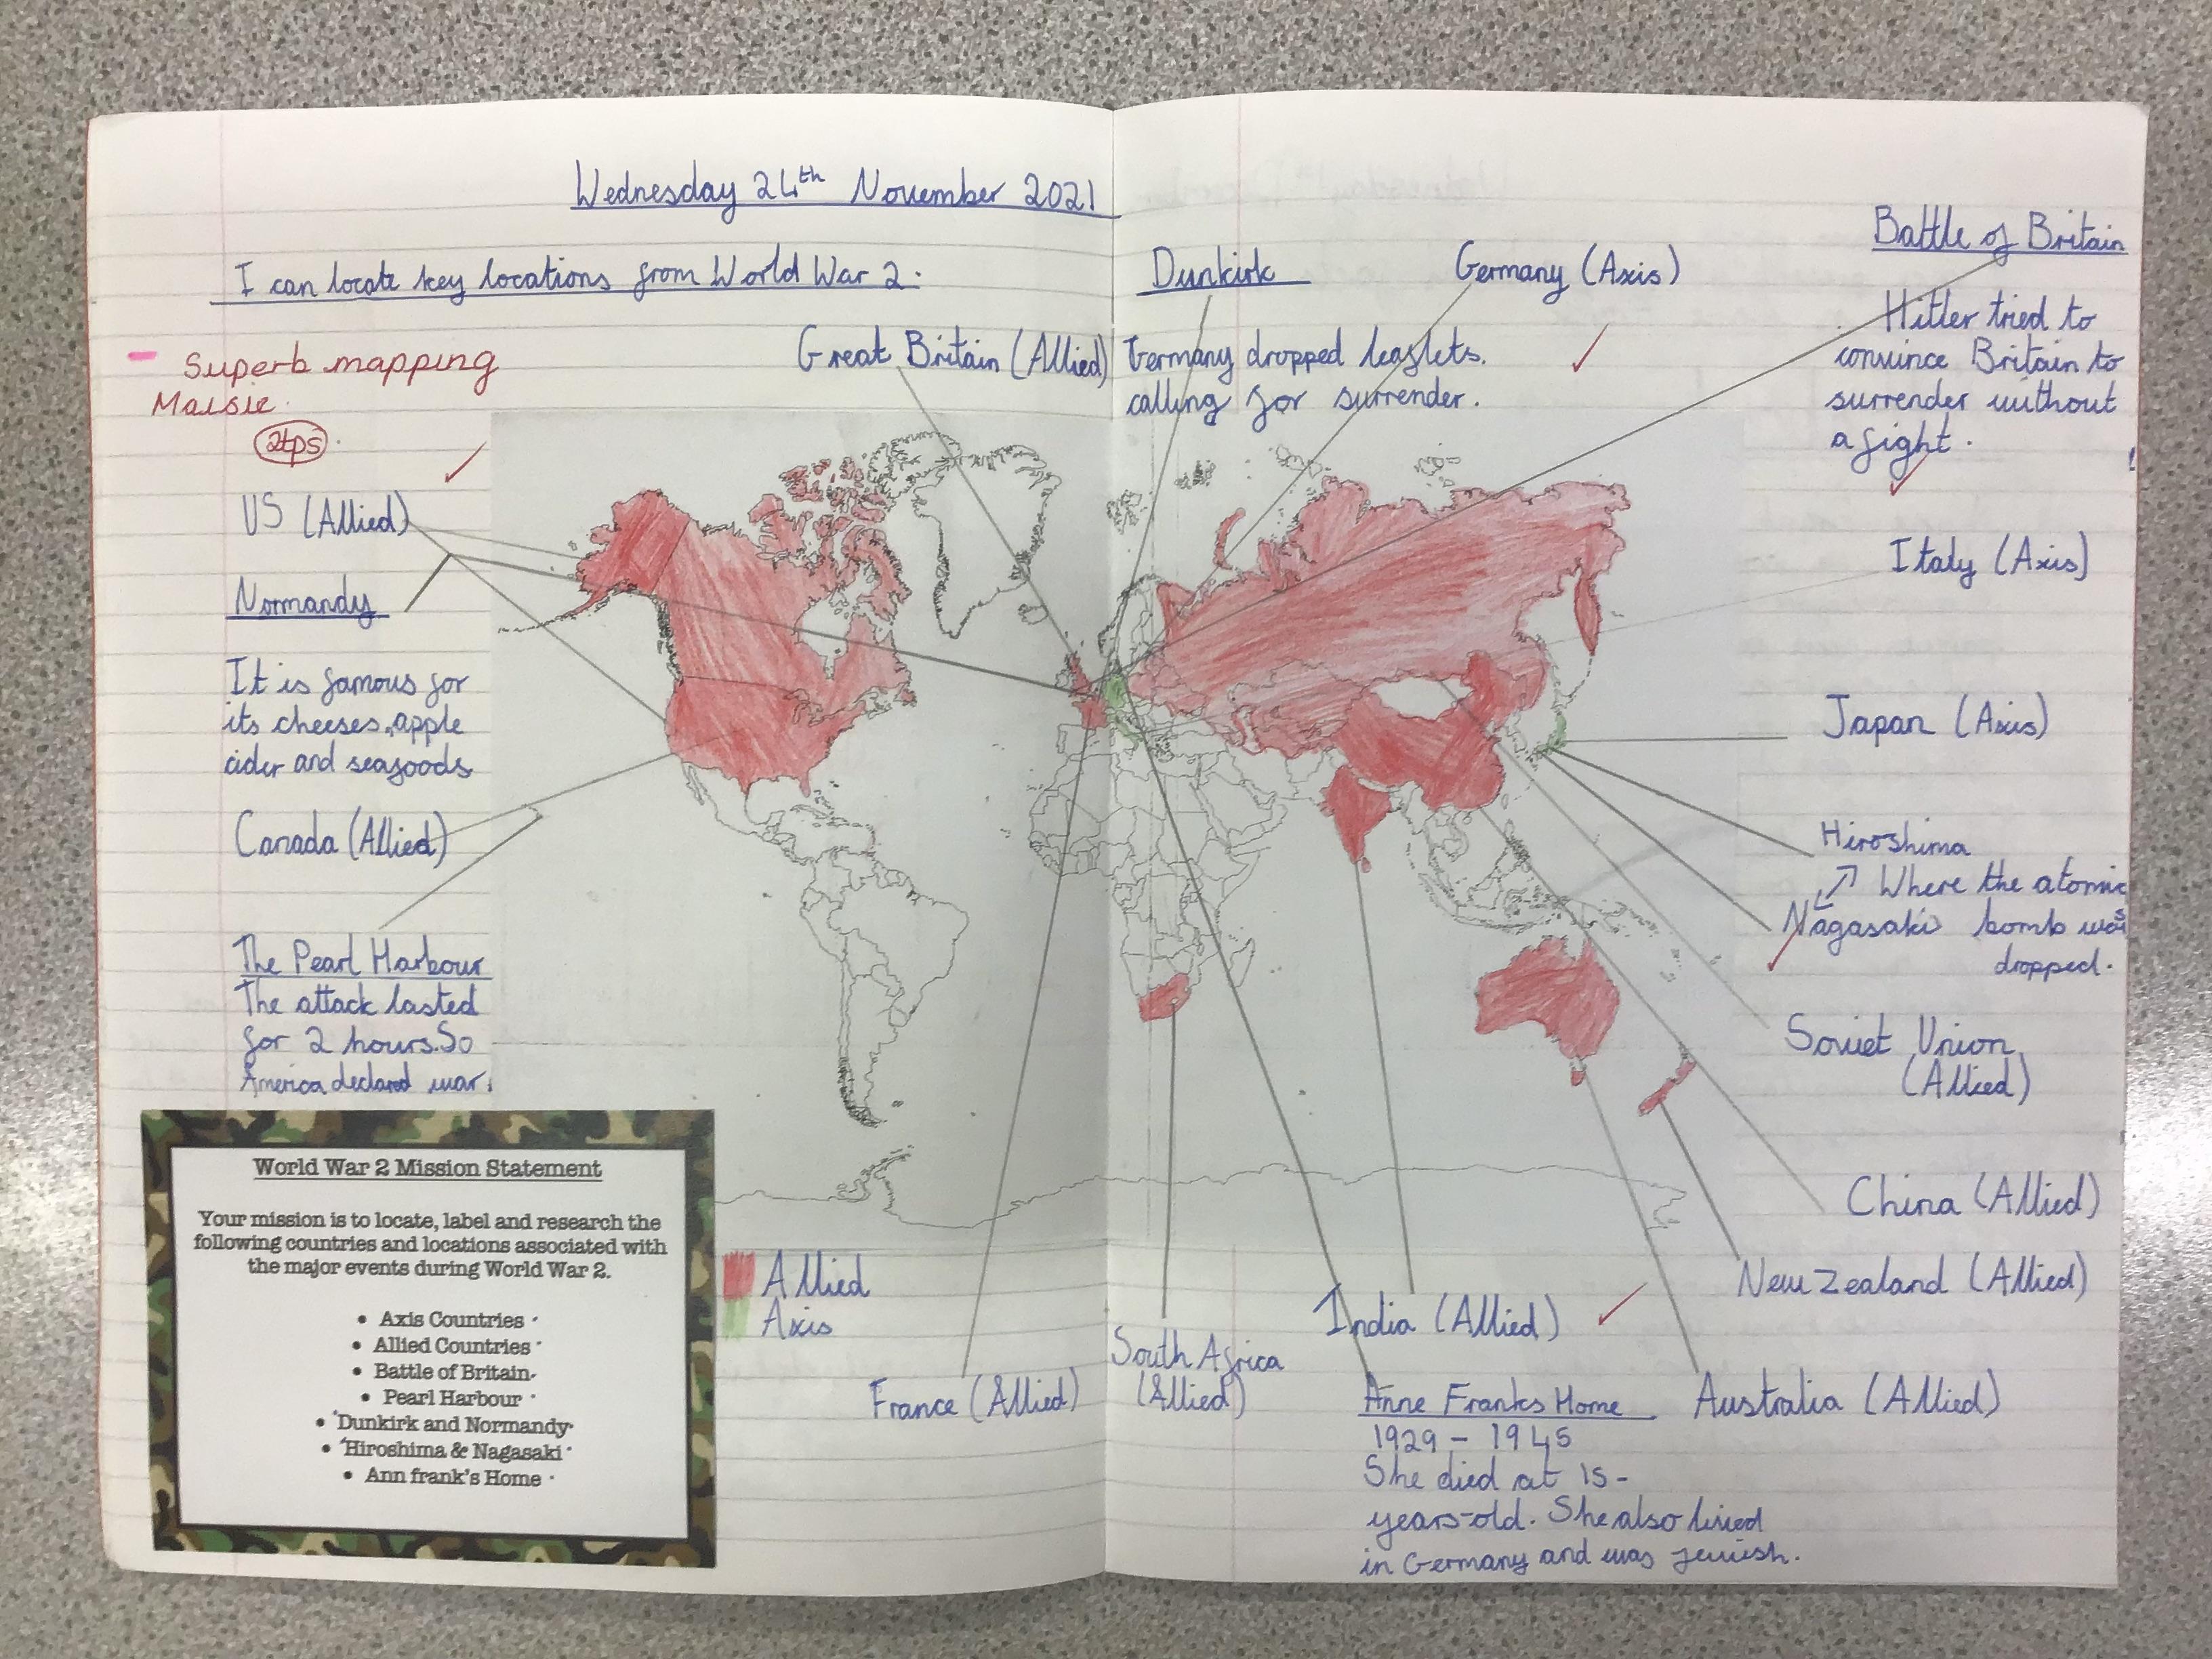 Wednesday 24th November 2021
I can locate key locations from World War 2.
Superb mapping
Maisie.
2tps
US (Allied)
Normandy
It is famous for
its cheeses, apple
cider and seafoods
Canada (Allied)
The Pearl Harbour
The attack lasted
for 2 hours. So
America declared war.
World War 2 Mission Statement
Your mission is to locate, label and research the
following countries and locations associated with
the major events during World War 2.
• Axis Countries
• Allied Countries
• Battle of Britain
• Pearl Harbour
• Dunkirk and Normandy
• Hiroshima & Nagasaki
• Ann frank's Home
Great Britain (Allied)
Allied
Axis
France (Allied)
Dunkirk
Germany dropped leaflets.
calling for surrender.
Germany (Axis)
Battle of Britain
Hitler tried to
convince Britain to
surrender without
a fight.
Italy (Axis)
Japan (Axis)
Hiroshima
Where the atomic
Nagasaki bomb was
dropped.
Soviet Union
(Allied)
China (Allied)
New Zealand (Allied)
India (Allied)
South Africa
(Allied)
Australia (Allied)
Anne Franks Home
1929 - 1945
She died at 15-
years-old. She also lived
in Germany and was jewish.